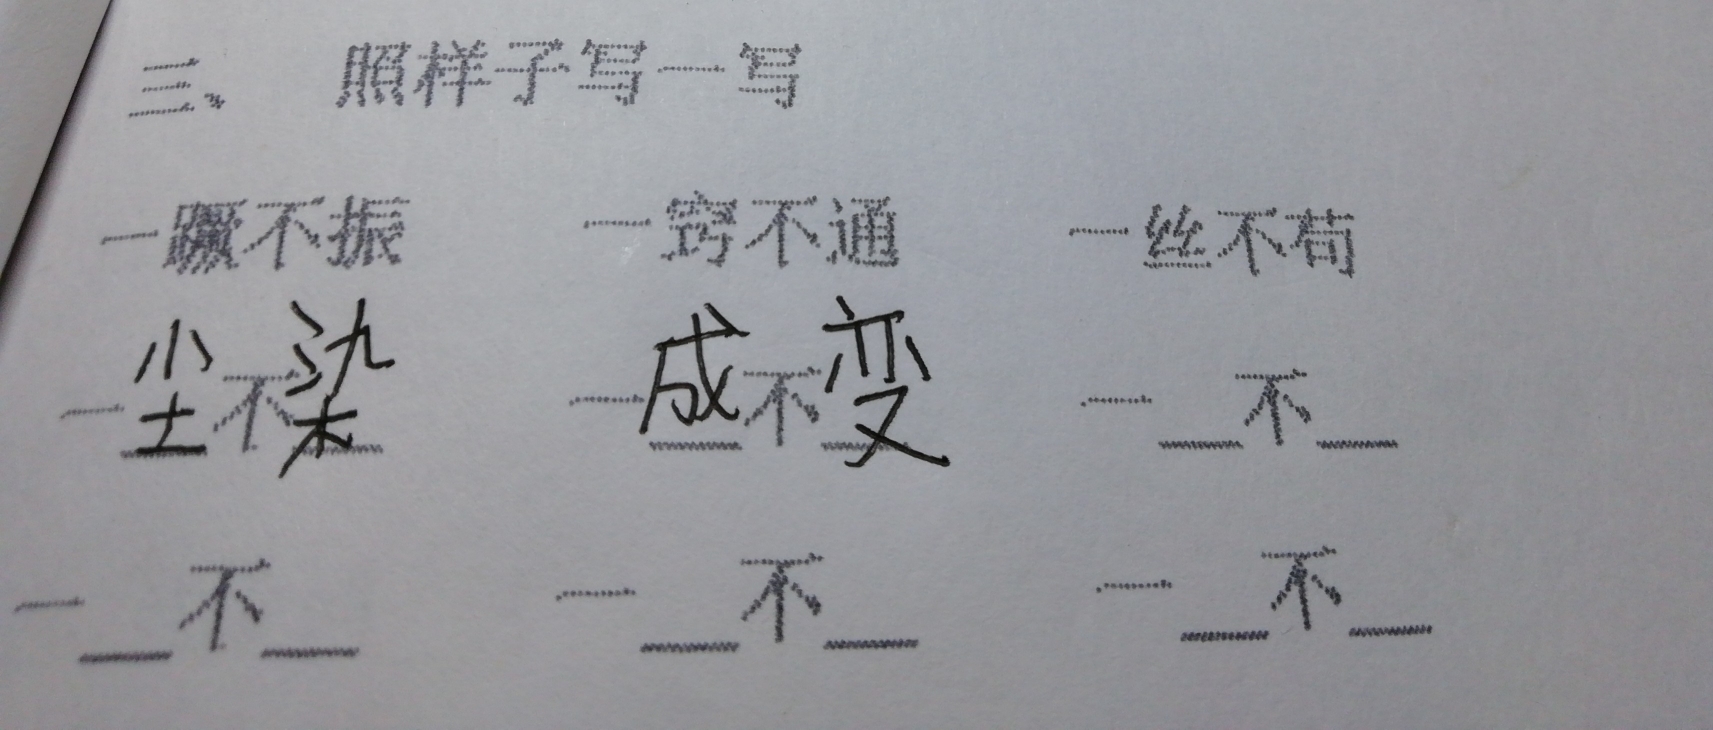 三、 照样子写一写
一蹶不振 一窍不通 一丝不苟
一尘不染 一成不变 一__不__
一__不__ 一__不__ 一__不__